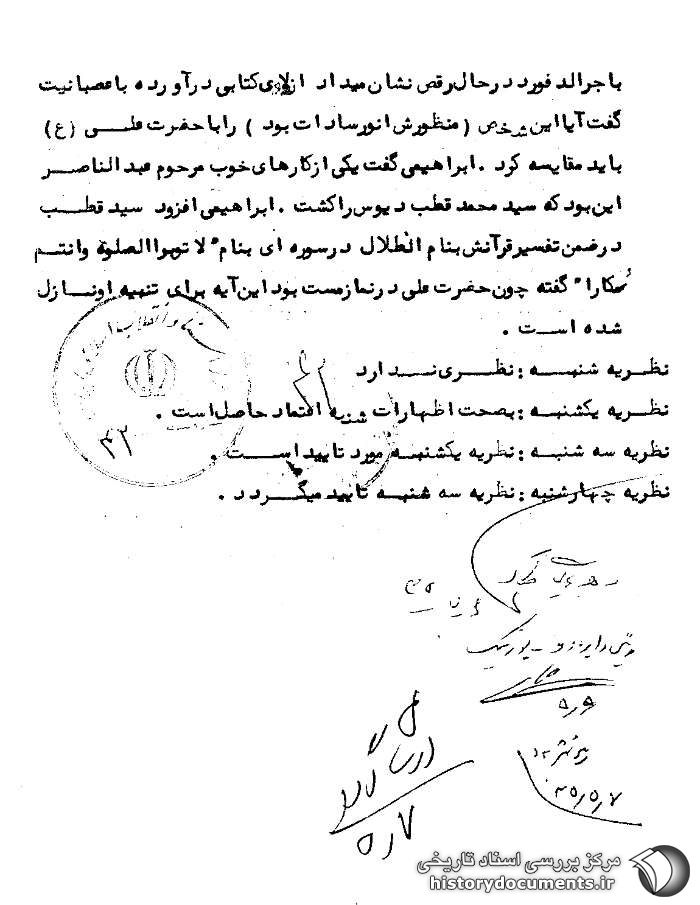 با جرالد فورد در حال رقص نشان میداد از لای کتابی درآورده با عصبانیت
گفت آیا این شخص ( منظورش انور سادات بود ) را با حضرت علی (ع)
باید مقایسه کرد . ابراهیمی گفت یکی از کارهای خوب مرحوم عبدالناصر
این بود که سید محمد قطب دیوس را کشت . ابراهیمی افزود سید قطب
در ضمن تفسیر قرآنش بنام الطلال در سوره ای بنام "لا تهرا الصلوة وانتم
سکارا" گفته چون حضرت علی در نماز مست بود این آیه برای تنبیه او نازل
شده است .
نظریه شنبه : نظری ندارد
نظریه یکشنبه : بصحت اظهارات شنبه اعتماد حاصل است .
نظریه سه شنبه : نظریه یکشنبه مورد تایید است .
نظریه چهارشنبه : نظریه سه شنبه تایید میگردد .
۴۲
۵/۷
مرکز بررسی اسناد تاریخی
historydocuments.ir